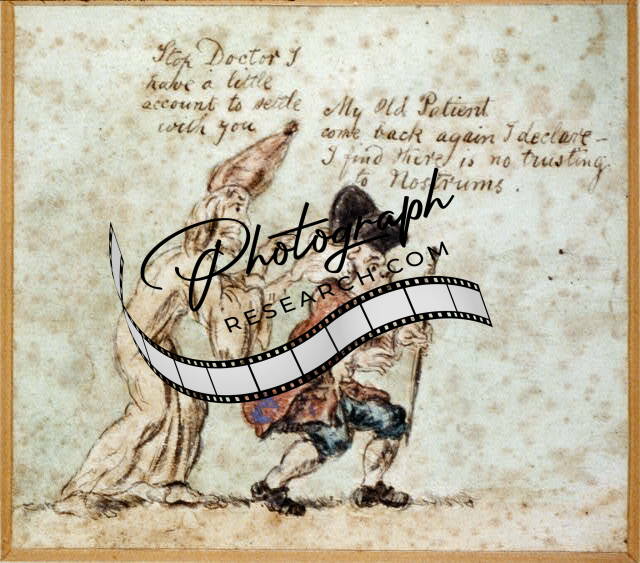 Stop Doctor I
have a little
account to settle
with you
My Old Patient
come back again I declare –
I find there is no trusting
to Nostrums .
Photograph
RESEARCH.COM